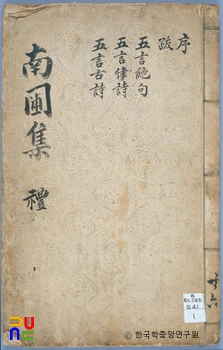 序
跋
五言絶句
五言律詩
五言古詩
南圃集 禮
共六
1
한국학중앙연구원